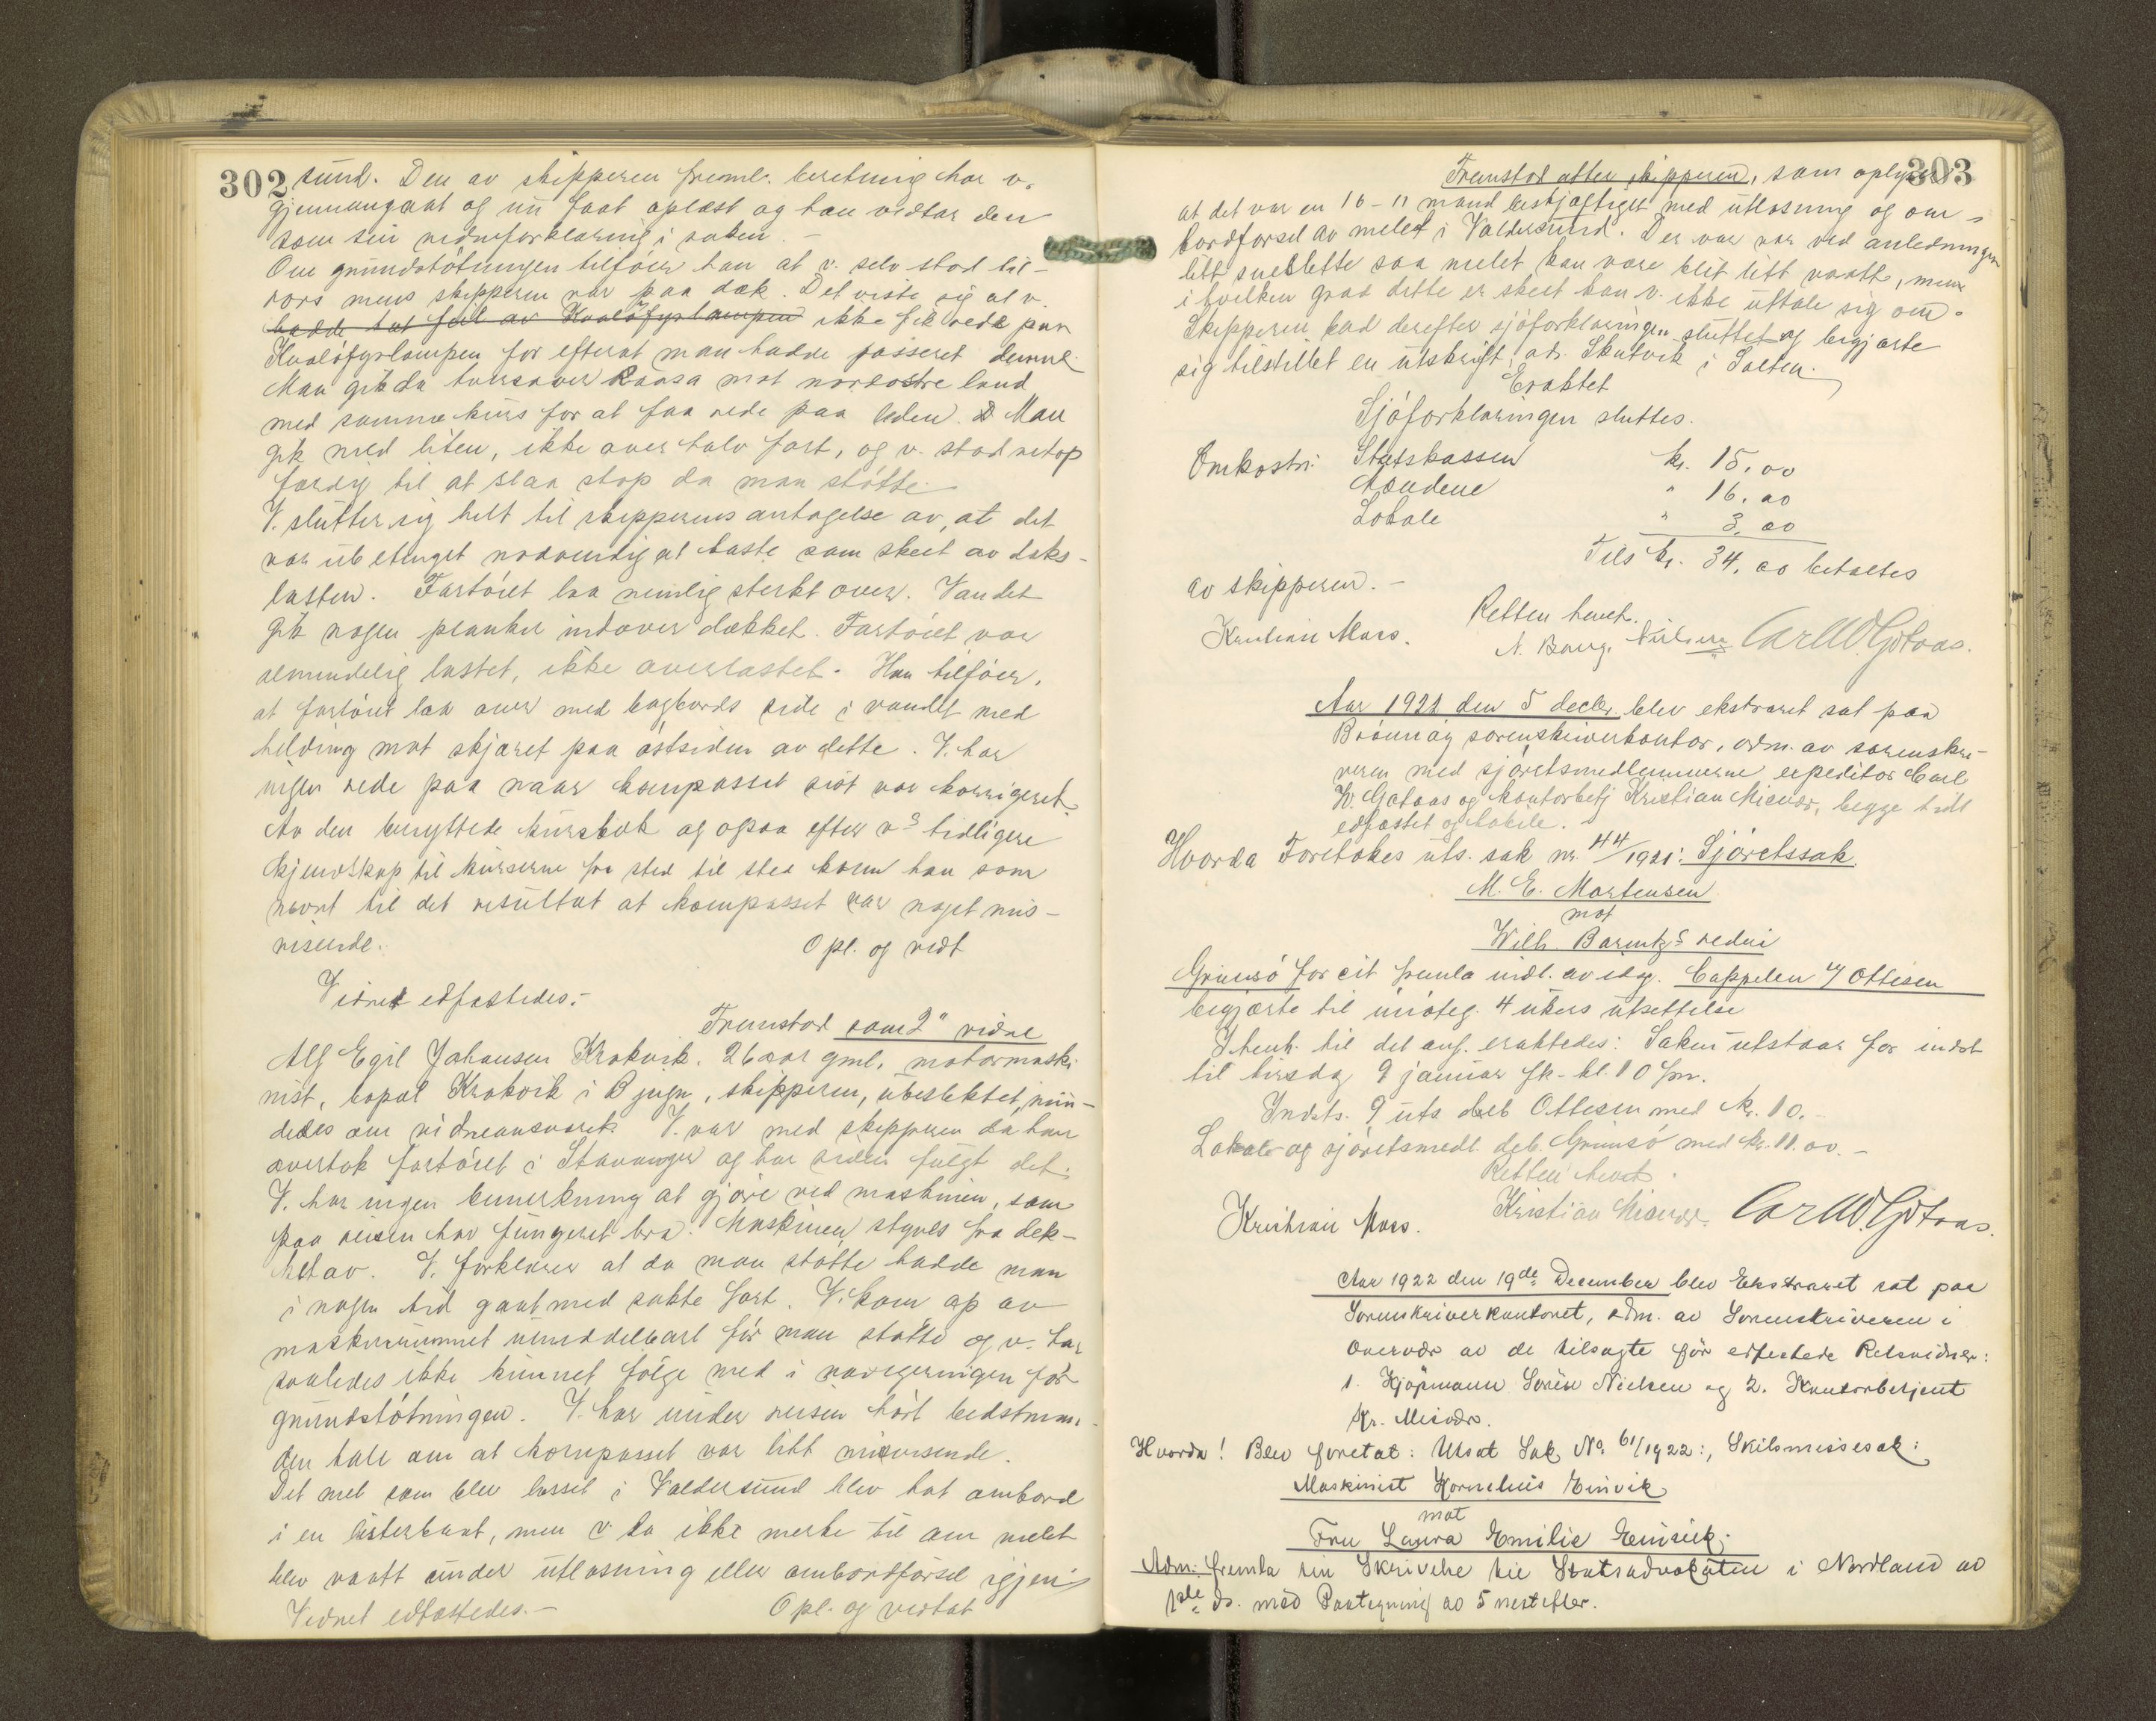 302
sund. Den av skipperen freml. beretning har v.
gjennemgaat og nu faat oplæst og han vedtar den
som sin vidneforklaring i saken.-
Om grundstötningen tilföier han at v. selv stod til-
rors mens skipperen var paa dæk. Det viste sig at v.
hadde tat feil av Kvalöfyrlampen ikke fik rede paa
Kvalöfyrlampen før efterat man hadde passeret denne.
Man gik da tversover Raasa mot nordostre land
med samme kurs for at faa rede paa leden. Man
gik med liten, ikke over halv fart, og v. stod netop
færdig til at slaa stop da man stötte.
V. slutter sig helt til skipperens antagelse av, at det
var ubetinget nødvendig at kaste som skeet av deks-
lasten. Fartöiet laa nemlig sterkt over. Vandet
gik nogen planker indover dækket. Fartöiet var
almindelig lastet, ikke overlastet. Han tilföier,
at fartöiet laa over med bagbords side i vandet med
helding mot skjæret paa östsiden av dette. V. har
ingen rede paa naar kompasset sist var korrigeret.
Av den benyttede kursbok og ogsaa efter v.s tidligere
kjendskap til kurserne fra sted til sted kom han som
nævnt til det resultat at kompasset var noget mis-
visende. Opl. og vedt
Vidnet edfæstedes.-
Fremstod som 2" vidne
Alf Egil Johansen Krakvik. 26 aar gml., motormaski-
nist, bopæl Krakvik i Bjugn, skipperen, ubeslektet, min-
dedes om vidneansvaret. V. var med skipperen da han
overtok fartöiet i Stavanger og har siden fulgt det.
V. har ingen bemerkning at gjøre ved maskinen, som
paa reisen har fungeret bra. Maskinen styres fra dek-
ket av. V. forklarer at da man stötte hadde man
i nogen tid gaat med sakte fart. V. kom op av
maskinrummet umiddelbart för man stötte og v. har
saaledes ikke kunnet følge med i navigeringen før
grundstötningen. V. har under reisen hört bedstman-
den tale om at kompasset var litt misvisende.
Det mel som blev losset i Valdersund blev tat ombord
i en listerbaat, men v. la ikke merke til om melet
blev vaatt under utlosning eller ombordförsel igjen.
Vidnet edfæstedes.- Opl. og vedtat
303
Fremstod atter skipperen, som oplyser
at det var en 10-11 mand beskjæftiget med utlosning og om-
bordförsel av melet i Valdersund. Der var ved anledningen
litt snebløite saa melet kan være blit litt vaatt, men
i hvilken grad dette er skeet kan v. ikke uttale sig om.
Skipperen bad derefter sjöforklaringen sluttet og begjærte
sig tilstillet en utskrift, adr. Skutvik i Salten.
Eraktet
Sjöforklaringen sluttes.
Omkostn: Statskassen kr. 15.00
Mændene " 16.00
Lokale " 3.00
Tils kr. 34.00 betaltes
av skipperen.-
Retten hævet.
Kristian Moss. N. Baug. Nielsen Carl W. Götaas.
Aar 1921 den 5 decbr. blev ekstraret sat paa
Brönnöy sorenskriverkontor, adm. av sorenskri-
veren med sjöretsmedlemmerne expeditor Carl
W. Götaas og kontorbetj Kristian Misvær, begge tidl
edfæstet og habile.
Hvorda Foretokes uts. sak nr. 44/1921: Sjöretssak
M. E. Mortensen
mot
Wilh. Barentz's rederi
Grimsö for cit fremla indl. av idag. Cappelen v/ Ottesen
begjærte til imöteg. 4 ukers utsettelse
I henh. til det anf. eraktedes: Saken utstaar for indst
til tirsdag 9 januar fk- kl. 10 fm.
Indsts. 9 uts deb Ottesen med kr. 10.-
Lokale og sjöretsmedl. deb. Grimsö med kr. 11.00.-
Retten hævet.
Kristian Moss. Kristian Misvær. Carl W. Götaas.
Aar 1922 den 19de December blev Ekstraret sat paa
Sorenskriverkontoret, adm. av Sorenskriveren i
Overvær av de tilsagte før edfestede Retsvidner:
1. Kjøpmann Sorén Nielsen og 2. Kontorbetjent
Kr. Misvær.
Hvorda! Blev foretat: Utsat Sak No. 61/1922:, Skilsmissesak:
Maskinist Kornelius Einvik
mot
Fru Laura Emilie Einvik.
Adm. fremla sin Skrivelse til Statsadvokaten i Nordland av
1ste ds. med Paategning av 5 nestefter.